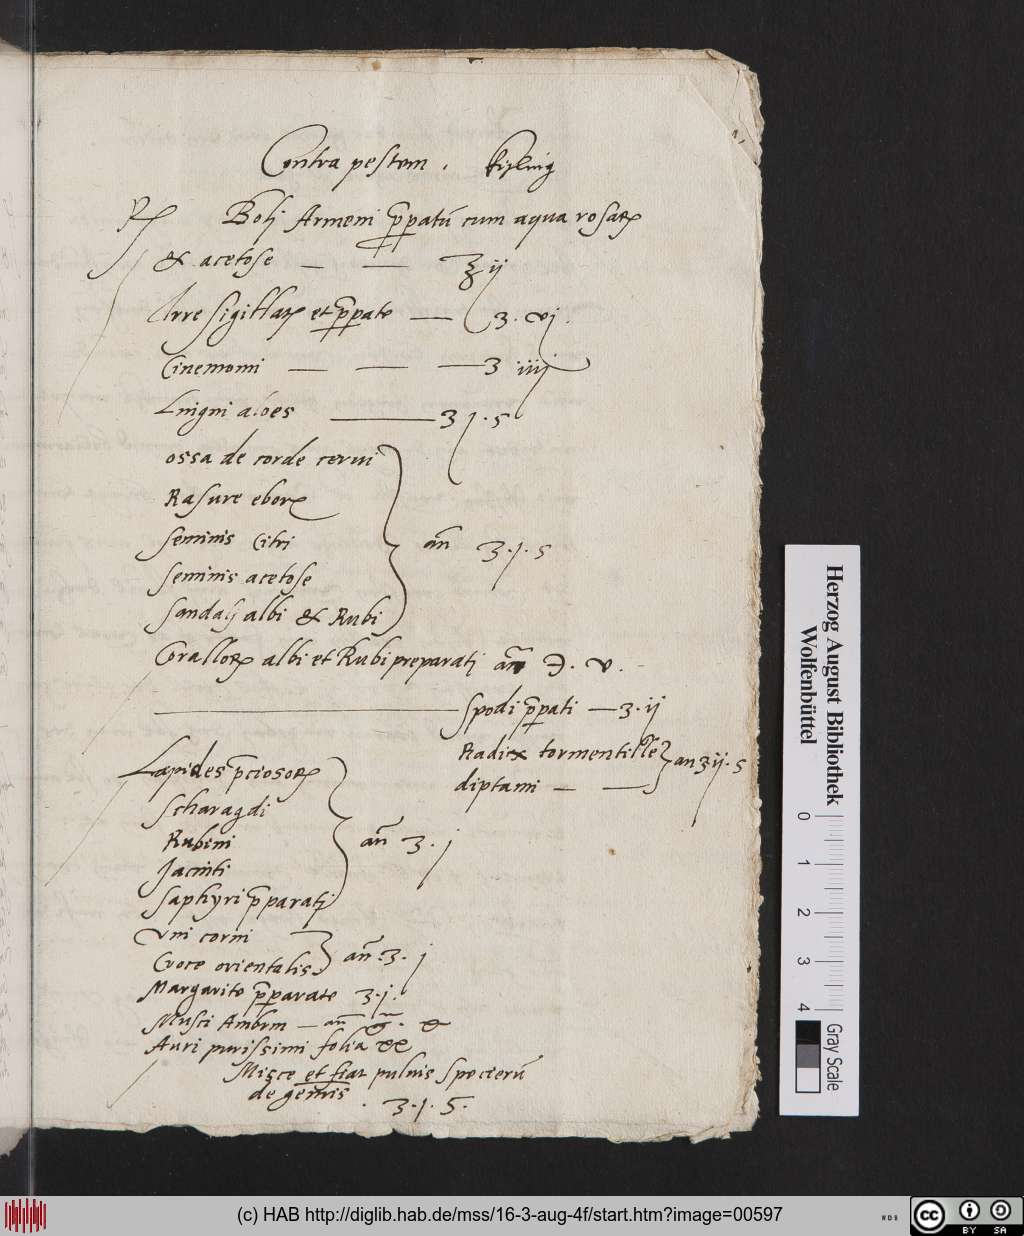 Contra pestem.
℞ Bolj Armeni p̄patū cum aqua rosaꝝ
& acetose — — ℥ ij
Trre sigillatꝝ et p̄pate — ʒ. vj.
Cinemomi — — — ʒ iiij
Lnigni aloes — ʒ j. s
ossa de corde cerui
Rasure eborꝝ
seminis Citri an̄ ʒ. j. s
seminis acetose
sandalj albi & Rubi
Corallorꝝ albi et Rubi preparatj an̄ ℈. v.
Spodi p̄pati — ʒ. ij
Radix tormentille an ʒ ij. s
diptami — —
Lapides p̄ciosorꝝ
Scharagdi
Rubini an̄ ʒ. j
Jacinti
Saphyri p̄paratj
Vni corni
Croce orientalis an̄. ʒ. j
Margarite p̄parate ʒ. j.
Musci Ambrm — an̄
Auri purissimi folia xx
Misce et fiat puluis specierū
de gemis. ʒ. j. s.
Herzog August Bibliothek
Wolfenbüttel
0 1 2 3 4
Gray Scale
(c) HAB http://diglib.hab.de/mss/16-3-aug-4f/start.htm?image=00597
WDB
cc BY SA